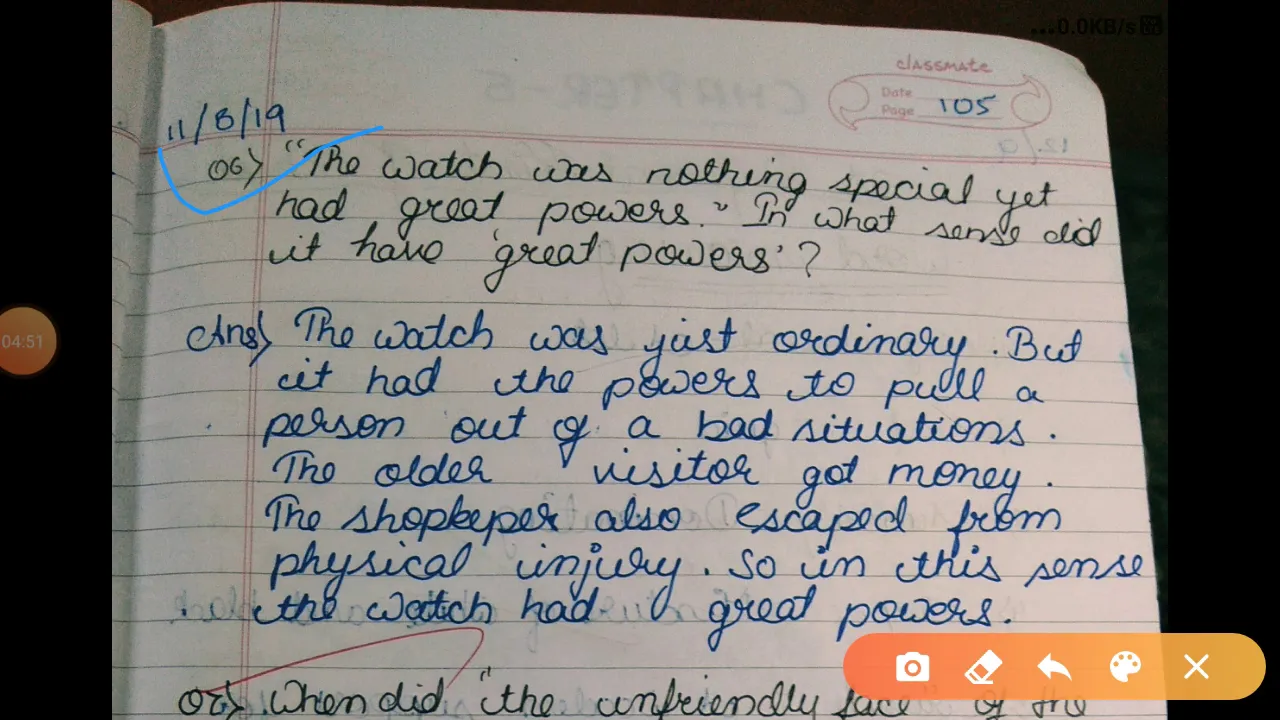 ...0.0KB/s
classmate
Date
Page 105
11/8/19
Q6> "The watch was nothing special yet
had great powers." In what sense did
it have 'great powers'?
Ans> The watch was just ordinary. But
it had the powers to pull a
person out of a bad situations.
The older visitor got money.
The shopkeper also escaped from
physical injury. So in this sense
the watch had great powers.
04:51
Q7> When did "the unfriendly face" of the